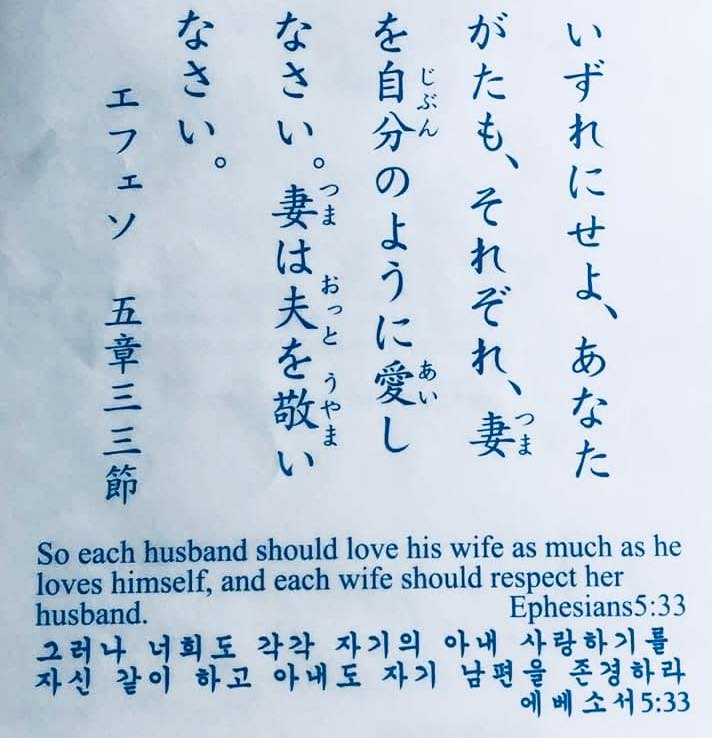 いずれにせよ、あなた
がたも、それぞれ、妻
を自分のように愛し
なさい。妻は夫を敬い
なさい。
エフェソ 五章三三節
So each husband should love his wife as much as he
loves himself, and each wife should respect her
husband. Ephesians5:33
그러나 너희도 각각 자기의 아내 사랑하기를
자신 같이 하고 아내도 자기 남편을 존경하라
에베소서5:33